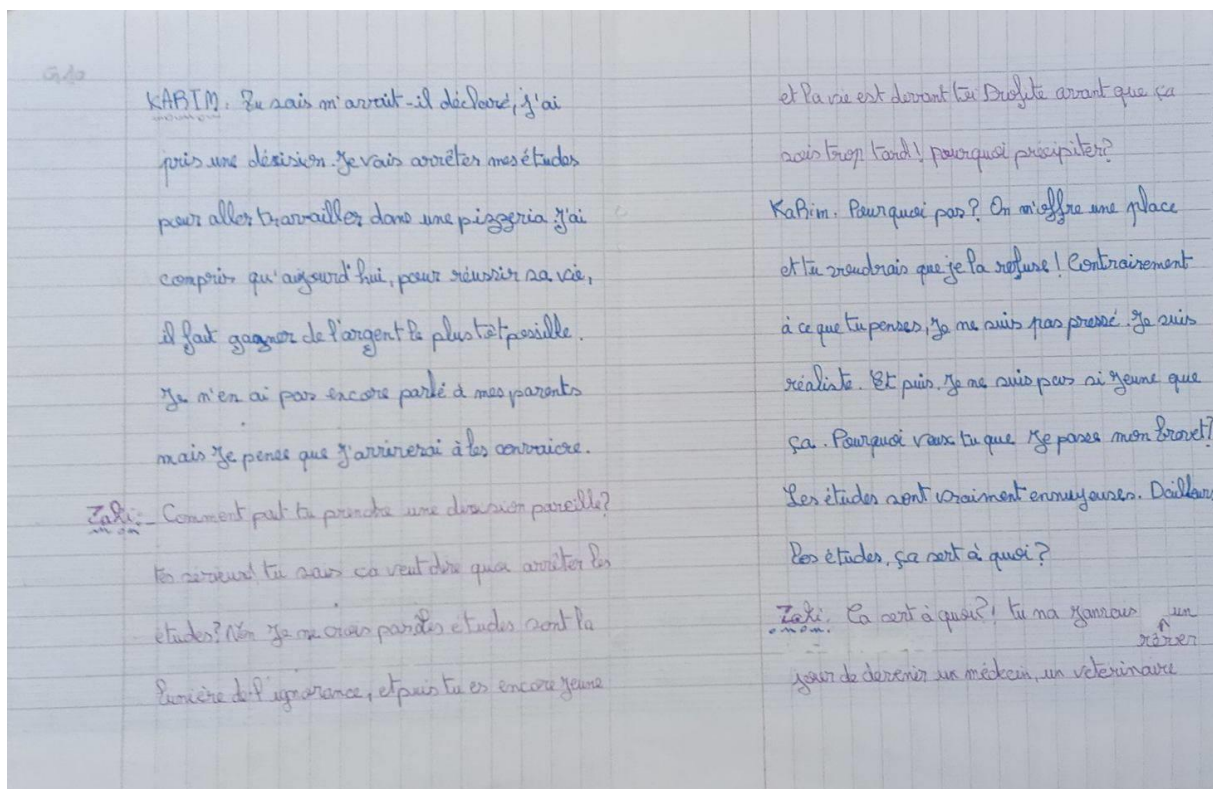 G10
KARIM. Tu sais m'avait-il déclaré, j'ai
pris une désision. Je vais arrêter mes études
pour aller travailler dans une pizzeria J'ai
compris qu'aujourd'hui, pour réussir sa vie,
il faut gagner de l'argent le plus tôt possible.
Je n'en ai pas encore parlé à mes parents
mais Je pense que J'arriverai à les convaicre.
Zaki:- Comment peut tu prendre une dicision pareille?
tes sérieux! tu sais ça veut dire quoi arrêter les
études? Non Je ne crois pas. les études sont la
lumière de l'ignorance, et puis tu es encore Jeune
et la vie est devant tu Profite avant que ça
sois trop tard! pourquoi précipiter?
Karim. Pourquoi pas? On m'offre une place
et tu voudrais que je la refuse! Contrairement
à ce que tu penses, Je ne suis pas pressé. Je suis
réaliste. Et puis, Je ne suis pas si Jeune que
ça. Pourquoi veux tu que Je passe mon brevet?
Les études sont vraiment ennuyeuses. Dailleurs
les études, ça sert à quoi?
Zaki. Ca sert à quois?! tu na Jamais rêver un
jour de devenir un médecin, un veterinaire